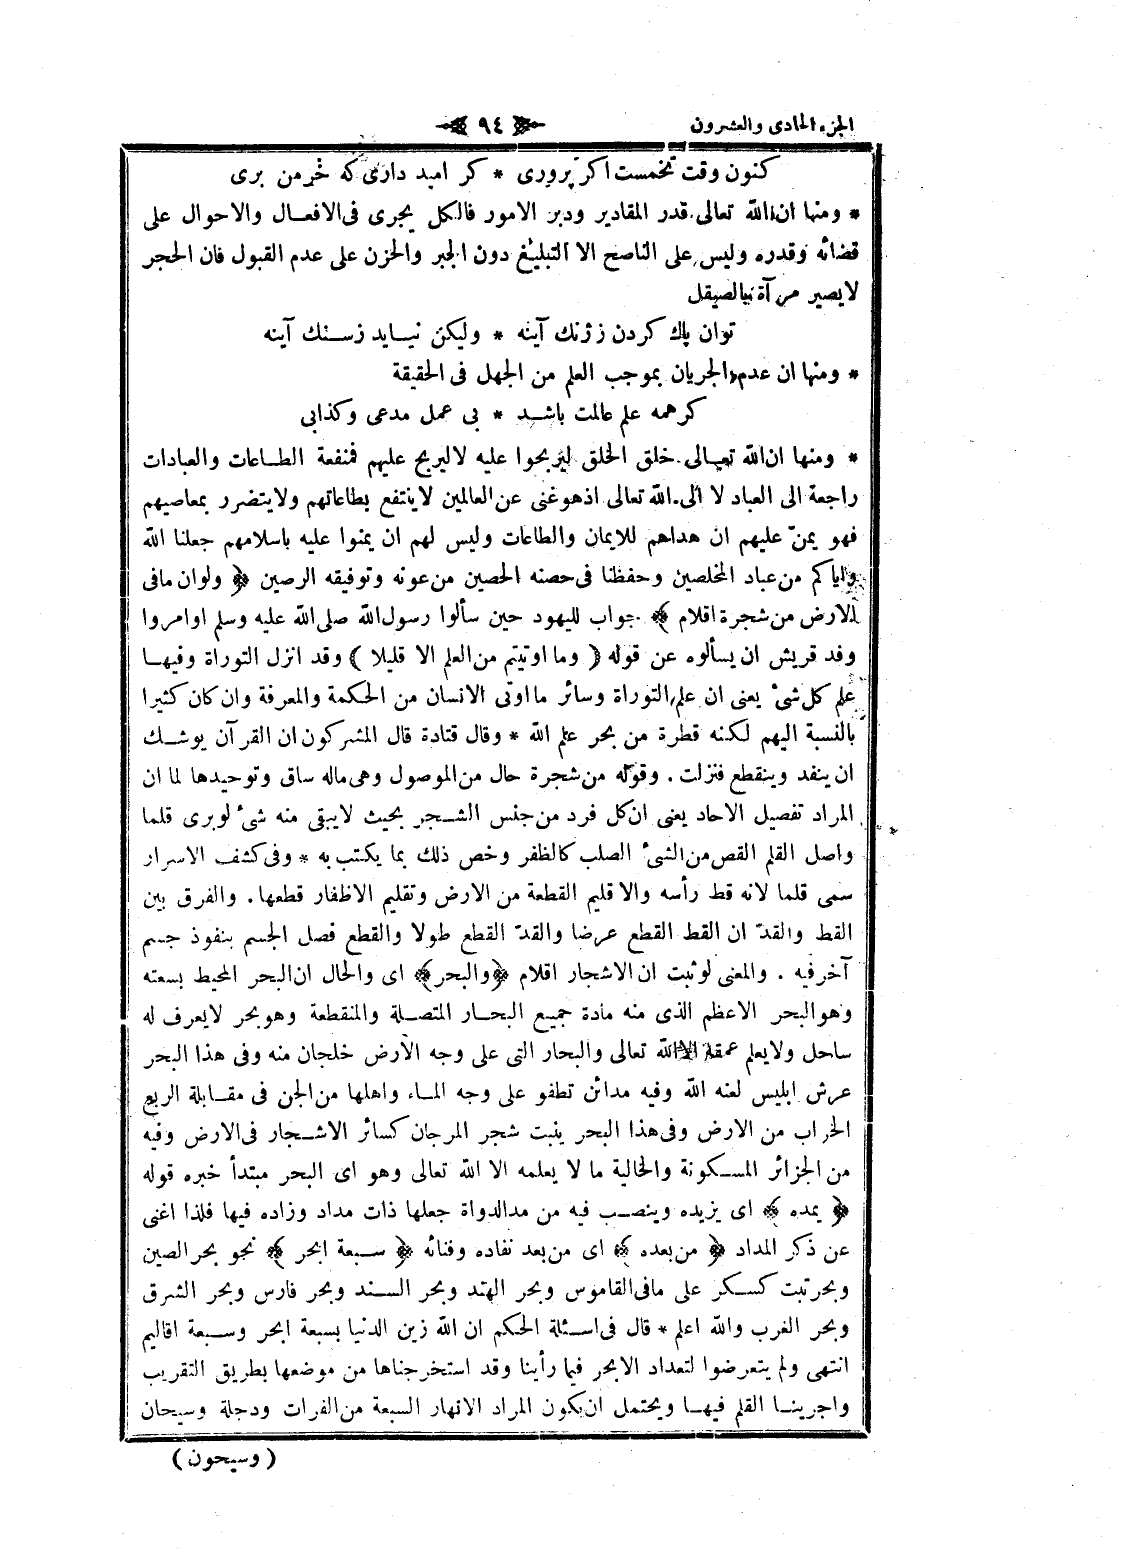 الجزء الحادى والعشرون
٩٤
كنون وقت تخمست اكر پرورى * كر اميد دارى كه خرمن برى
* ومنها ان الله تعالى قدر المقادير ودبر الامور فالكل يجرى فى الافعـال والاحوال على
قضائه وقدره وليس على الناصح الا التبليغ دون الجبر والحزن على عدم القبول فان الحجر
لا يصير مرآة بالصيقل
توان پاك كردن ززنك آينه * وليكن نيـايد زسـنك آينه
* ومنها ان عدم الجريان بموجب العلم من الجهل فى الحقيقة
كرهمه علم عالمت باشـد * بى عمل مدعى وكذابى
* ومنها ان الله تعـالى خلق الخلق ليربحوا عليه لا ليربح عليهم فمنفعة الطـاعات والعبادات
راجعة الى العباد لا الى الله تعالى اذ هو غنى عن العالمين لا ينتفع بطاعاتهم ولا يتضرر بمعاصيهم
فهو يمنّ عليهم ان هداهم للايمان والطاعات وليس لهم ان يمنوا عليه باسلامهم جعلنا الله
واياكم من عباد المخلصين وحفظنا فى حصنه الحصين من عونه وتوفيقه الرصين ﴿ ولو ان مافى
الارض من شجرة اقلام ﴾ جواب لليهود حين سألوا رسول الله صلى الله عليه وسلم او امروا
وفد قريش ان يسألوه عن قوله ( وما اوتيتم من العلم الا قليلا ) وقد انزل التوراة وفيهـا
علم كل شئ يعنى ان علم التوراة وسائر ما اوتى الانسان من الحكمة والمعرفة وان كان كثيرا
بالنسبة اليهم لكنه قطرة من بحر علم الله * وقال قتادة قال المشركون ان القرآن يوشـك
ان ينفد وينقطع فنزلت . وقوله من شجرة حال من الموصول وهى ماله ساق وتوحيدها لما ان
المراد تفصيل الاحاد يعنى ان كل فرد من جنس الشـجر بحيث لا يبقى منه شئ لو برى قلما
واصل القلم القص من الشئ الصلب كالظفر وخص ذلك بما يكتب به * وفى كشف الاسرار
سمى قلما لانه قط رأسه والاقليم القطعة من الارض وتقليم الاظفار قطعها . والفرق بين
القط والقدّ ان القط القطع عرضا والقدّ القطع طولا والقطع فصل الجسم بنفوذ جسم
آخر فيه . والمعنى لو ثبت ان الاشجار اقلام ﴿ والبحر ﴾ اى والحال ان البحر المحيط بسعته
وهو البحر الاعظم الذى منه مادة جميع البحـار المتصـلة والمنقطعة وهو بحر لا يعرف له
ساحل ولا يعلم عمقه الا الله تعالى والبحار التى على وجه الارض خلجان منه وفى هذا البحر
عرش ابليس لعنه الله وفيه مدائن تطفو على وجه المـاء واهلها من الجن فى مقـابلة الربع
الخراب من الارض وفى هذا البحر ينبت شجر المرجان كسائر الاشـجار فى الارض وفيه
من الجزائر المسـكونة والخالية ما لا يعلمه الا الله تعالى وهو اى البحر مبتدأ خبره قوله
﴿ يمده ﴾ اى يزيده وينصـب فيه من مد الدواة جعلها ذات مداد وزاده فيها فلذا اغنى
عن ذكر المداد ﴿ من بعده ﴾ اى من بعد نفاده وفنائه ﴿ سـبعة ابحر ﴾ نحو بحر الصين
وبحر تبت كسـكر على مافى القاموس وبحر الهند وبحر السـند وبحر فارس وبحر الشرق
وبحر الغرب والله اعلم * قال فى اسـئلة الحكم ان الله زين الدنيا بسبعة ابحر وسـبعة اقاليم
انتهى ولم يتعرضوا لتعداد الابحر فيما رأينا وقد استخرجناها من موضعها بطريق التقريب
واجرينـا القلم فيهـا ويحتمل ان يكون المراد الانهار السبعة من الفرات ودجلة وسيحان
( وسيحون )